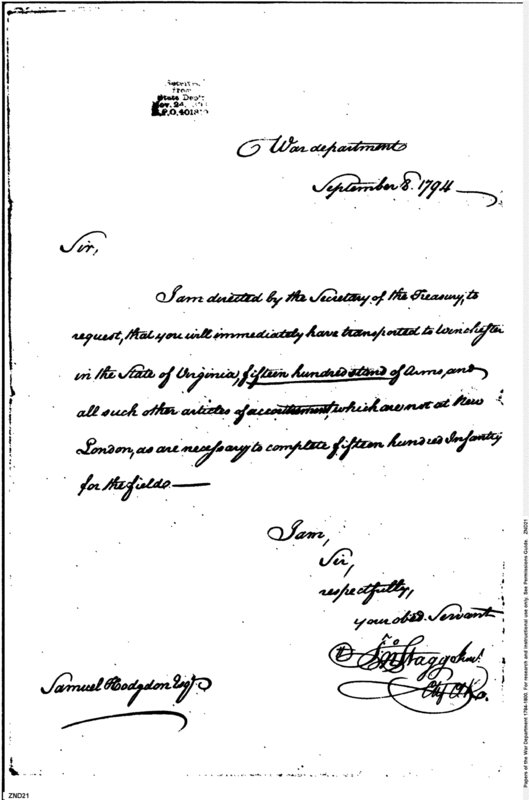 Received
from
State Dept.
Nov. 24,
A.P.O. 401810
War department
September 8. 1794
Sir,
I am directed by the Secretary of the Treasury, to
request, that you will immediately have transported to Winchester
in the State of Virginia, fifteen hundred stand of Arms, and
all such other articles of accoutrement, which are not at New
London, as are necessary to complete fifteen hundred Infantry
for the field.
I am,
Sir,
respectfully,
your obed. Servant
Jno Stagg Junr.
Chf Clk.
Samuel Hodgdon Esqr.
ZND21
Papers of the War Department 1784-1800. For research and instructional use only. See Permissions Guide. ZND21